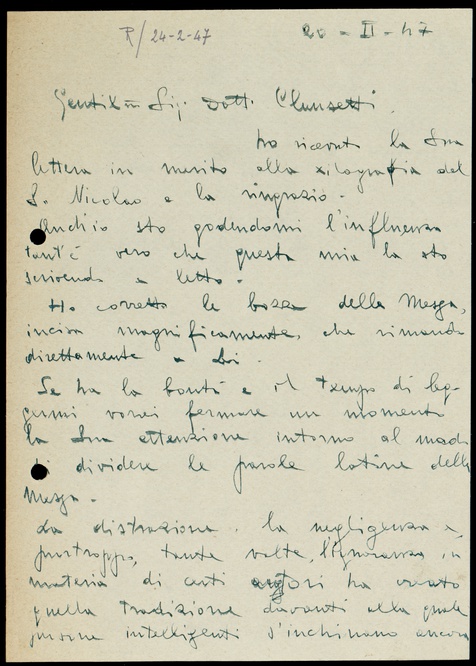 R/ 24-2-47
20 - II - 47
Gentilm Sig. Dott. Clausetti.
ho ricevuto la Sua
lettera in merito alla xilografia del
S. Nicolao e la ringrazio -
Anch'io sto godendomi l'influenza
tant'è vero che questa mia la sto
scrivendo a letto -
Ho corretto le bozze della Messa,
incisa magnificamente, che rimando
direttamente a Lei -
Se ha la bontà e il tempo di leg-
germi vorrei fermare un momento
la Sua attenzione intorno al modo
di dividere le parole latine della
Messa -
La distrazione, la negligenza e,
purtroppo, tante volte, l'ignoranza in
materia di certi autori ha creato
quella tradizione davanti alla quale
persone intelligenti s'inchinano ancora